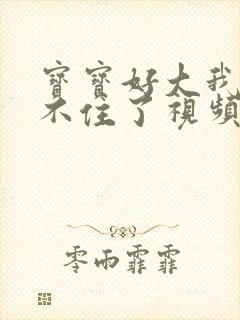 寶寶好大我
不住了視頻
零雨霏霏